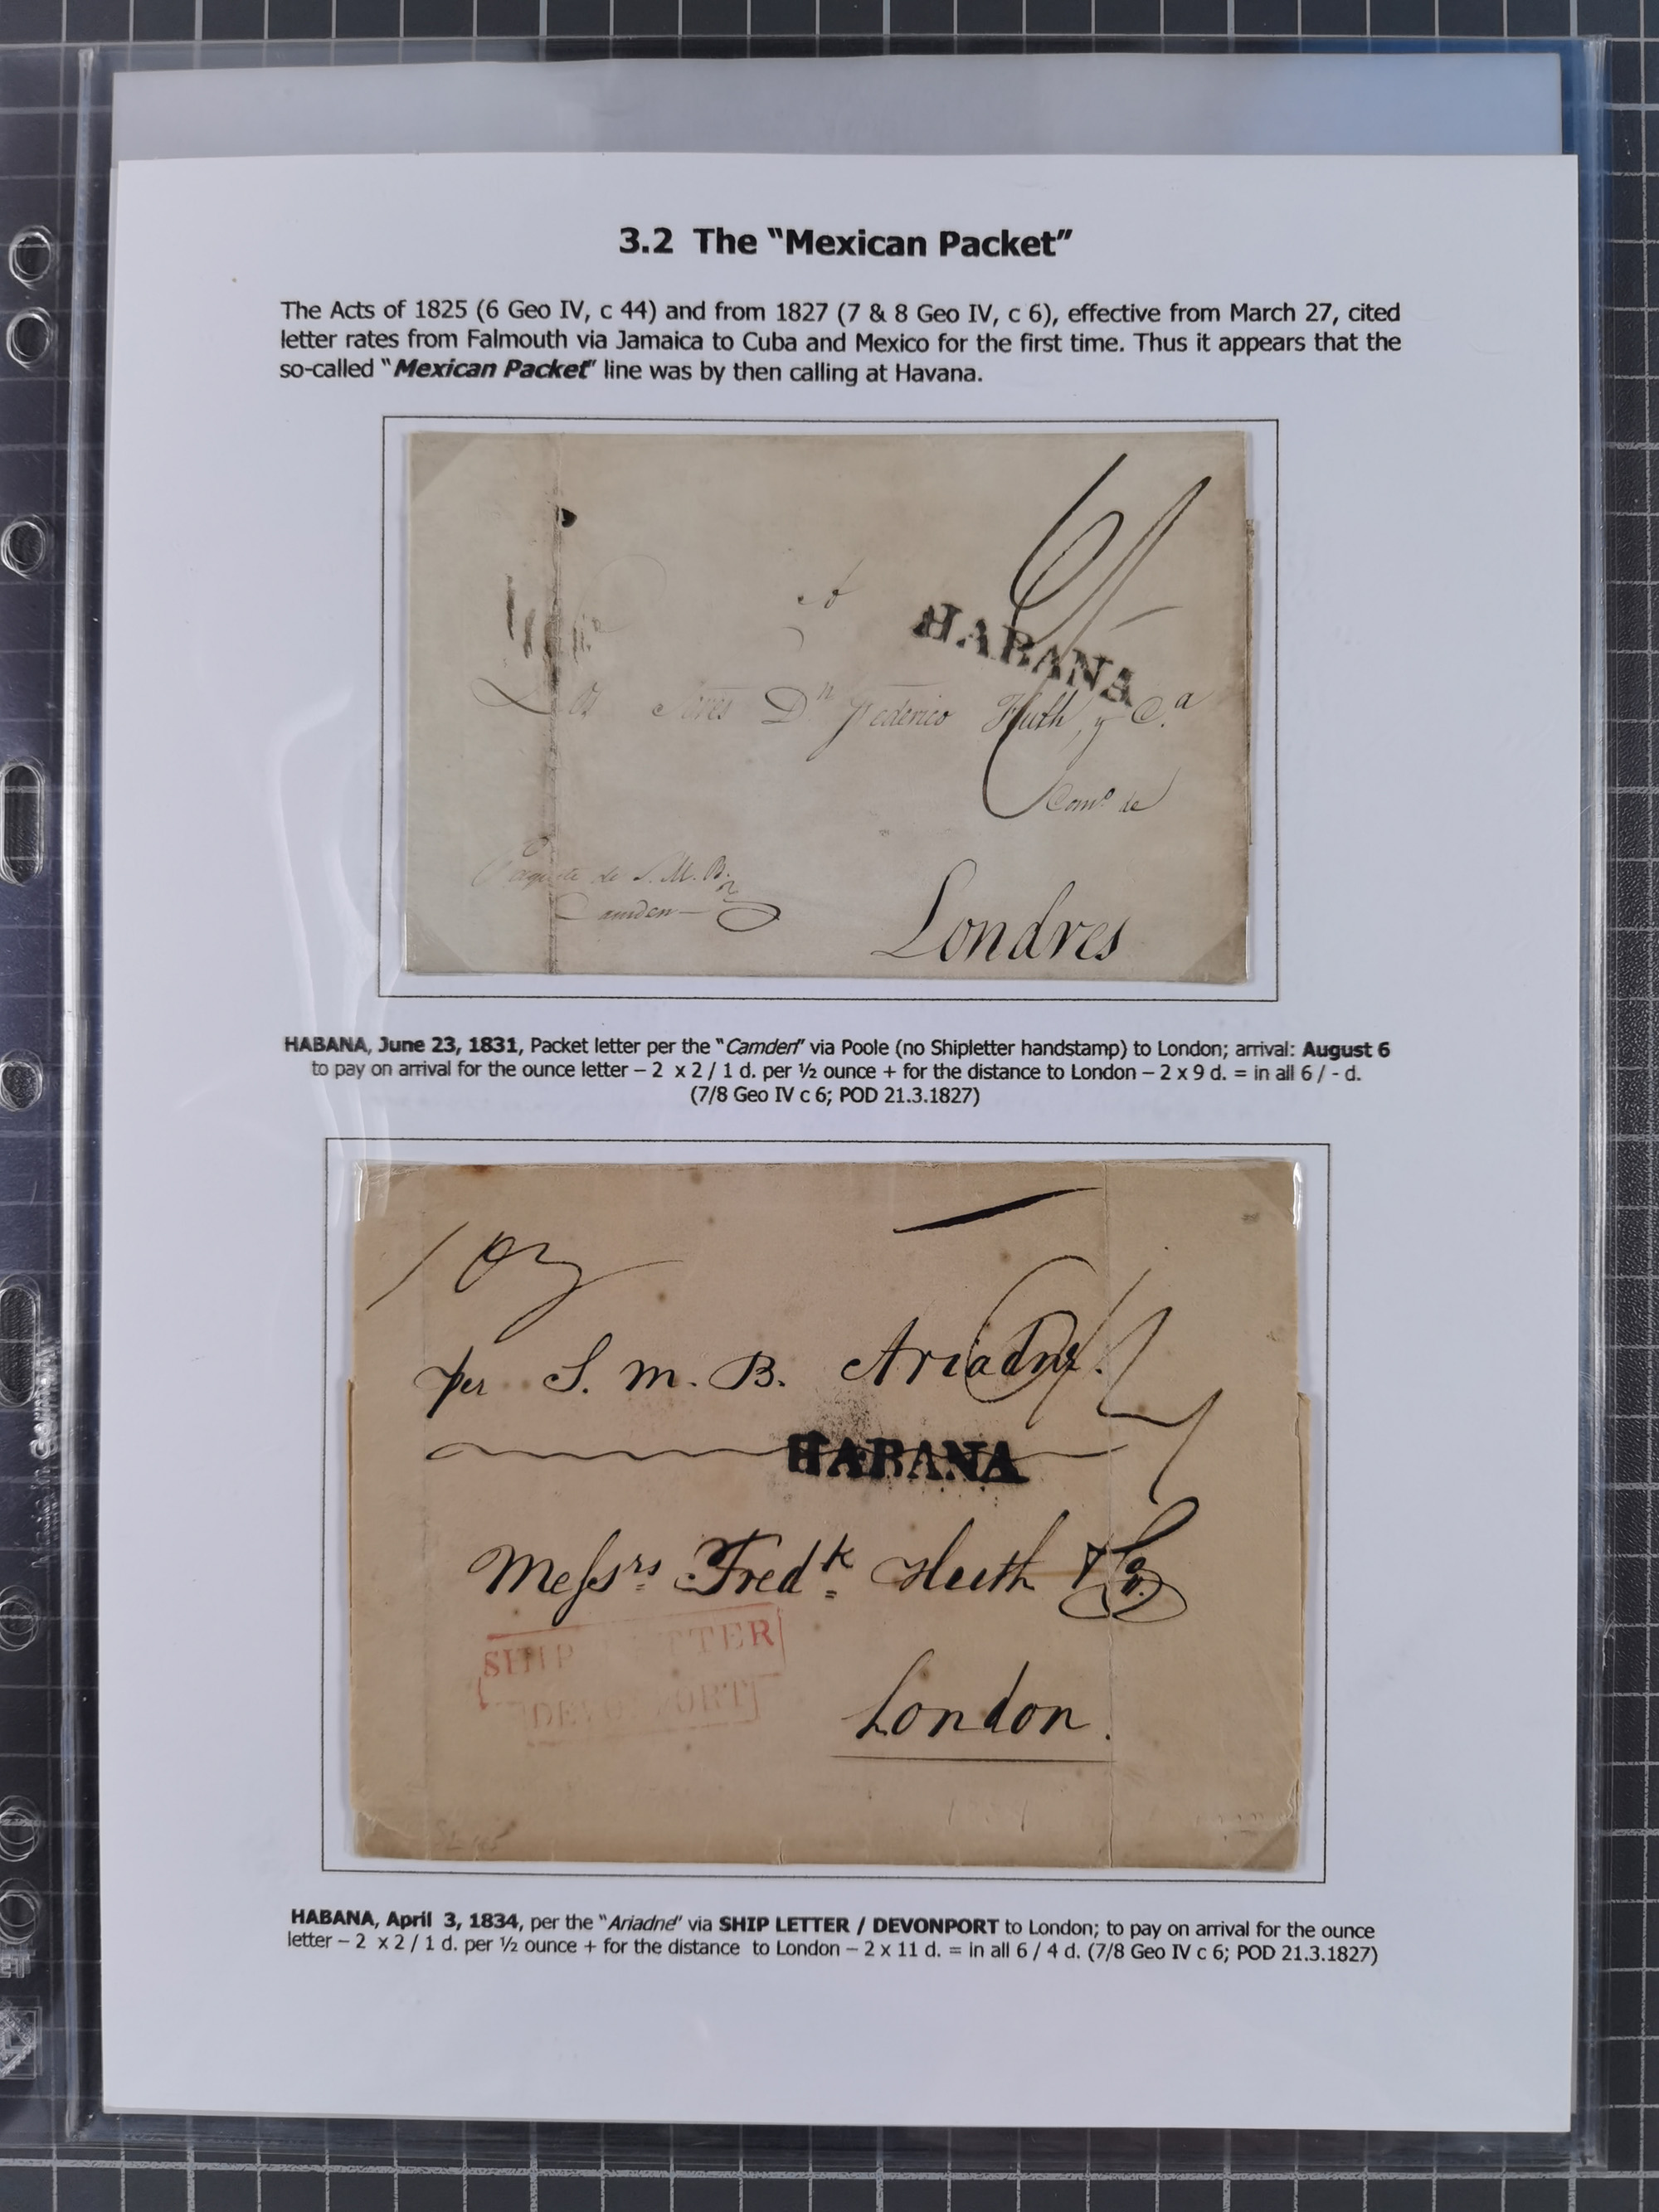 3.2 The "Mexican Packet"
The Acts of 1825 (6 Geo IV, c 44) and from 1827 (7 & 8 Geo IV, c 6), effective from March 27, cited
letter rates from Falmouth via Jamaica to Cuba and Mexico for the first time. Thus it appears that the
so-called "Mexican Packet" line was by then calling at Havana.
6/-
HABANA
Los Sores Dn Federico Huth y Ca
Como de
Paquete de S. M. B.
Camden
Londres
HABANA, June 23, 1831, Packet letter per the "Camden" via Poole (no Shipletter handstamp) to London; arrival: August 6
to pay on arrival for the ounce letter – 2 x 2 / 1 d. per ½ ounce + for the distance to London – 2 x 9 d. = in all 6 / - d.
(7/8 Geo IV c 6; POD 21.3.1827)
1 oz
6/4
per S. M. B. Ariadne.
HABANA
Messrs Fredk Huth & Co.
SHIP LETTER
DEVONPORT
London.
HABANA, April 3, 1834, per the "Ariadne" via SHIP LETTER / DEVONPORT to London; to pay on arrival for the ounce
letter – 2 x 2 / 1 d. per ½ ounce + for the distance to London – 2 x 11 d. = in all 6 / 4 d. (7/8 Geo IV c 6; POD 21.3.1827)